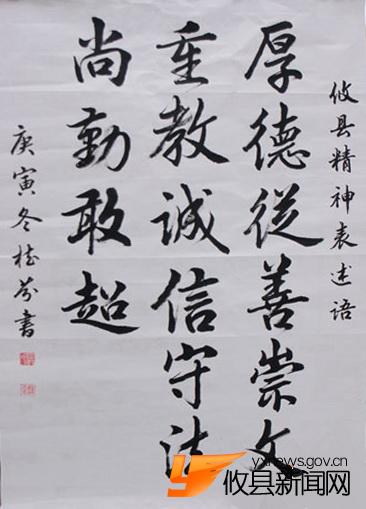 攸县精神表述语
厚德從善崇文
重教诚信守法
尚勤敢超
庚寅冬桂芬書
yxnews.gov.cn
攸县新闻网